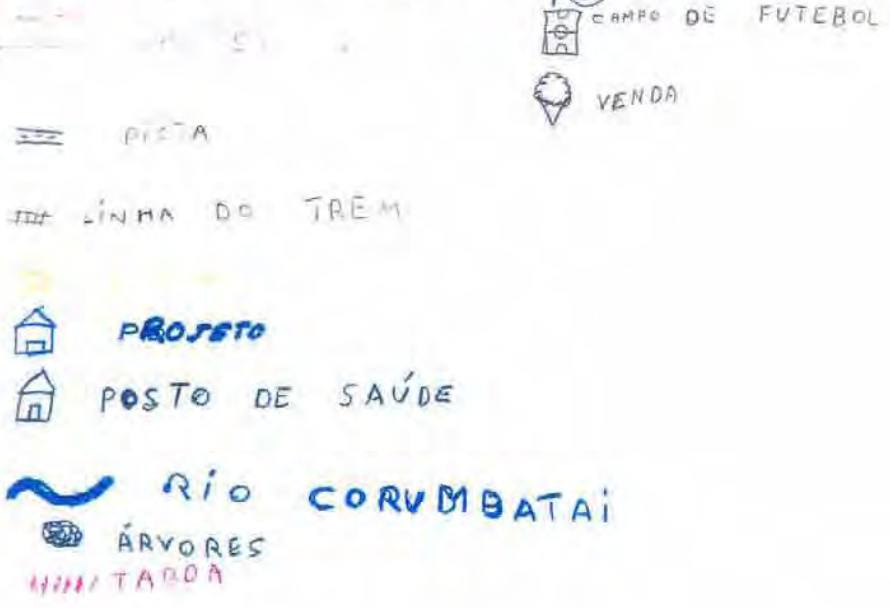 CAMPO DE FUTEBOL
VENDA
PISTA
LINHA DO TREM
PROJETO
POSTO DE SAÚDE
RIO CORUMBATAI
ÁRVORES
TABOA